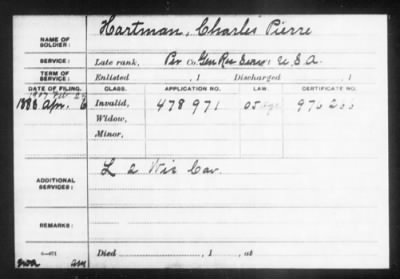 NAME OF SOLDIER: Hartman, Charles Pierre
SERVICE: Late rank, Pvt Co. Gen Rec Serv: U.S.A.
TERM OF SERVICE: Enlisted , 1 Discharged , 1
DATE OF FILING. CLASS. APPLICATION NO. LAW. CERTIFICATE NO.
1907 Feb
1886 Apr. 6 Invalid, 478971
Widow,
Minor,
ADDITIONAL SERVICES: L 2 Wis Cav.
REMARKS:
Died , 1 , at